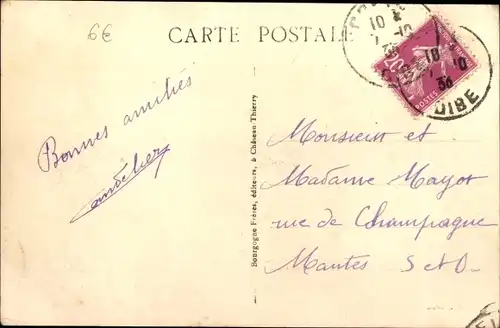 6€
CARTE POSTALE
20c
POSTES
10
36
OISE
Bonnes amitiés
Bourgogne Frères, éditeurs, à Château-Thierry
Monsieur et
Madame Mayot
rue de Champagne
Mantes S et O.